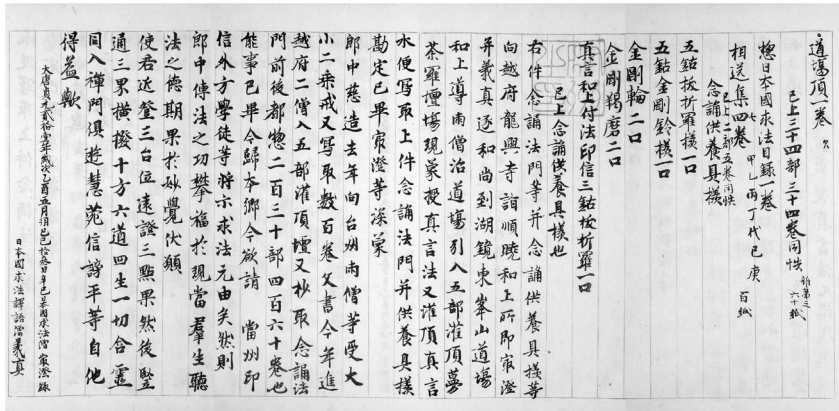 道場頂一卷
已上三十四部三十四卷同帙 雜第三 六十紙
惣日本國求法目録一卷
相送集四卷 甲乙丙丁戊己庚 百紙
已上二部五卷同帙
念誦供養具樣
五鈷拔折羅樣一口
五鈷金剛鈴樣一口
金剛輪二口
金剛羯磨二口
真言和上付法印信三鈷拔折羅一口
已上念誦供養具樣也
右件念誦法門等并念誦供養具樣等
向越府龍興寺詣順曉和上所即最澄
并義真逐和尚到湖鏡東峯山道場
和上導兩僧治道場引入五部灌頂曼
荼羅壇場現蒙授真言法又灌頂真言
水便寫取上件念誦法門并供養具樣
勘定已畢最澄等深蒙
郎中慈造去年向台州兩僧等受大
小二乘戒又寫取數百卷文書今年進
越府二僧入五部灌頂壇又抄取念誦法
門前後都惣二百三十部四百六十卷也
能事已畢今歸本鄉今欲請 當州印
信外方學徒等將示求法元由矣然則
郎中傳法之功攀福於現當羣生聽
法之德期果於妙覺伏願
使君近登三台位遠證三點果然後豎
通三界橫撥十方六道四生一切含靈
同入禪門俱遊慧苑信謗平等自他
得益歟
大唐貞元貳拾壹年歲次乙酉五月朔己巳拾叁日辛巳日本國求法僧最澄錄
日本國求法譯語僧義真